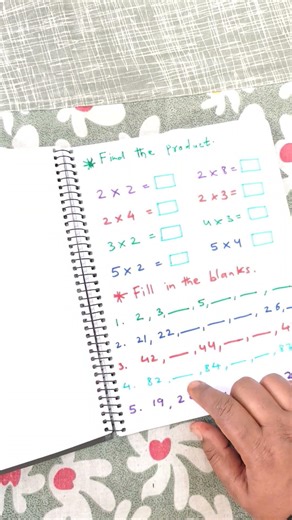 * Find the product.
2 × 2 = 2 × 8 =
2 × 4 = 2 × 3 =
3 × 2 = 4 × 3 =
5 × 2 = 5 × 4
* Fill in the blanks.
1. 2, 3, __, 5, __, __,
2. 21, 22, __, __, __, 26,
3. 42, __, 44, __, __, 4
4. 82, __, 84, __, __, 87
5. 19, 2